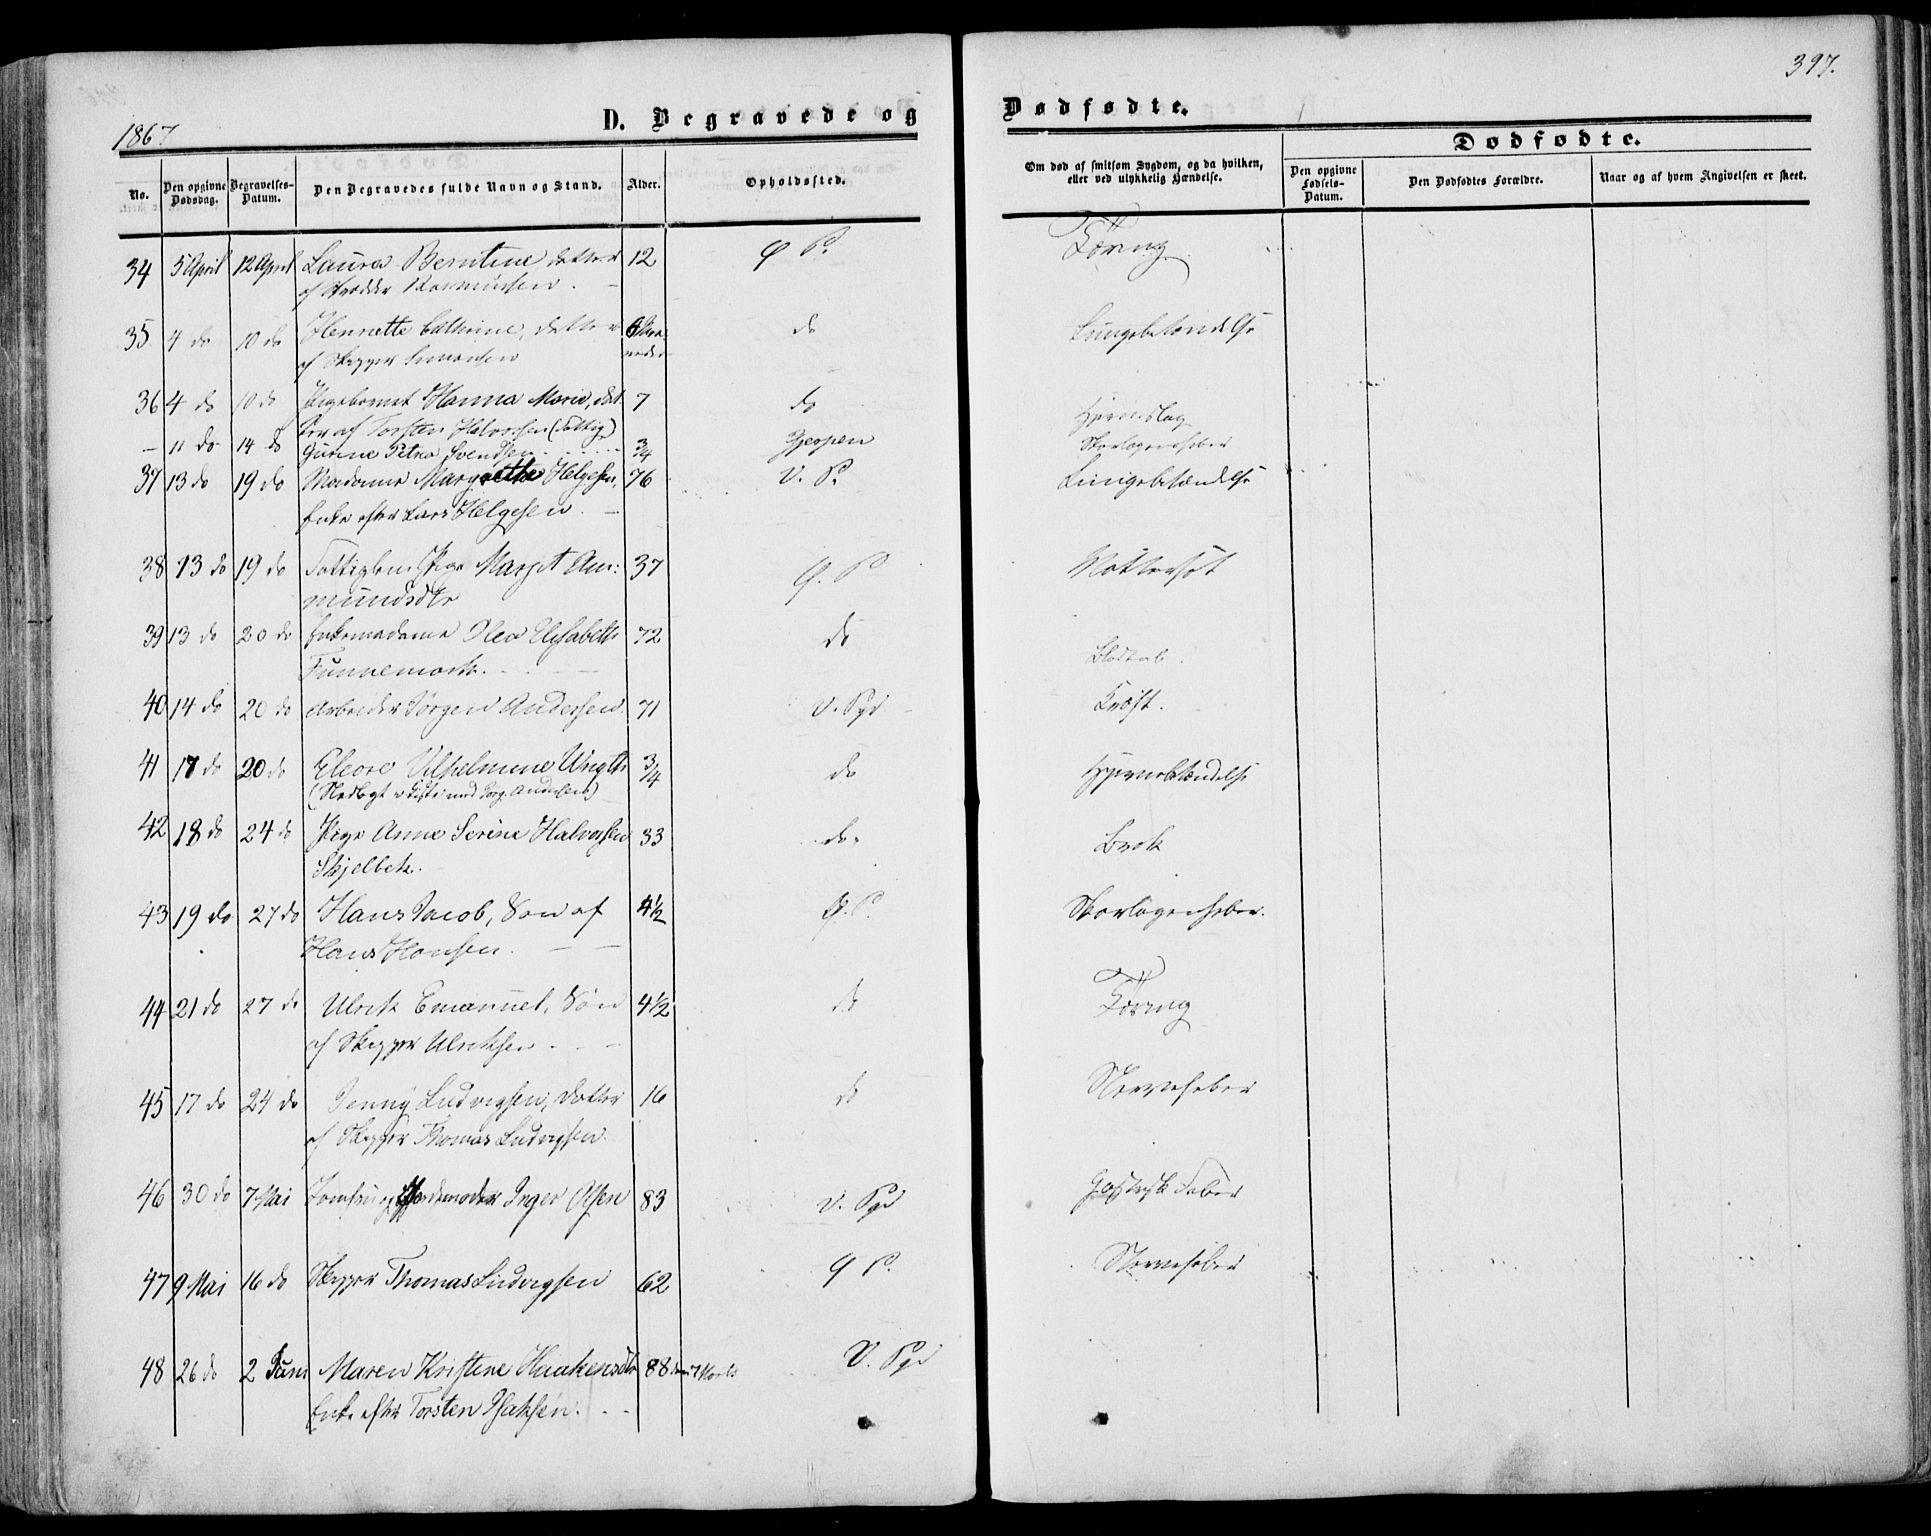 397.
1867
D. Begravede og Dødfødte.
No. Den opgivne Dødsdag. Begravelses-Datum. Den Begravedes fulde Navn og Stand. Alder. Opholdssted. Om død af smitsom Sygdom, og da hvilken, eller ved ulykkelig Hændelse.
Dødfødte.
Den opgivne Fødsels-Datum. Den Dødfødtes Forældre. Naar og af hvem Angivelsen er skeet.
34 5 April 12 April Laura Berntine datter 12 Ø P. Tæring
af Skrædder Rasmussen.
35 4 do 10 do Henriette Cathrine, datter do Lungebetændelse
af Skipper Simonsen
36 4 do 10 do Pigebarnet Hanna Marie, dat 7 do Hjerneslag
ter af Torsten Halvorsen (Fattig)
— 11 do 14 do Gunne Petra Svendsen 3/4 Gjerpen Skarlagensfeber
37 13 do 19 do Madame Margrethe Helgesen, 76 V. P. Lungebetændelse
Enke efter Lars Helgesen.
38 13 do 19 do Fattiglem Pige Margit Am: 37 Ø. P
mundsdtr
39 13 do 20 do Enkemadame Olea Elisabeth 72 do
Funnemark.
40 14 do 20 do Arbeider Jørgen Andersen 71 V. Pgd
41 17 do 20 do Eleore Vilhelmine 3/4 do Hjernebetændelse
42 18 do 24 do Pige Anne Serine Halvorsen 33 do. Brok
Skjelbek.
43 19 do 27 do Hans Jacob, Søn af 4 1/2 Ø. P. Skarlagensfeber.
Hans Hansen.
44 21 do 27 do Ulrik Emanuel, Søn 4 1/2 do Tæring
af Skipper Ulriksen
45 17 do 24 do Jenny Ludvigsen, datter 16 do Nervefeber
af Skipper Thomas Ludvigsen.
46 30 do 7 Mai Jomfru og Jordemoder Inger Olsen 83 V. Pgd Gastrisk Feber
47 9 Mai 16 do Skipper Thomas Ludvigsen 62 Ø P. Nervefeber
48 26 do 2 Juni Maren Kristine Haakensdtr 88 V. Pgd
Enke efter Torsten Isaksen.